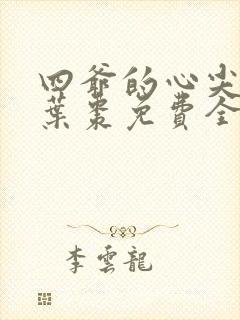 四爺的心尖
葉棗免費全
李雲龍